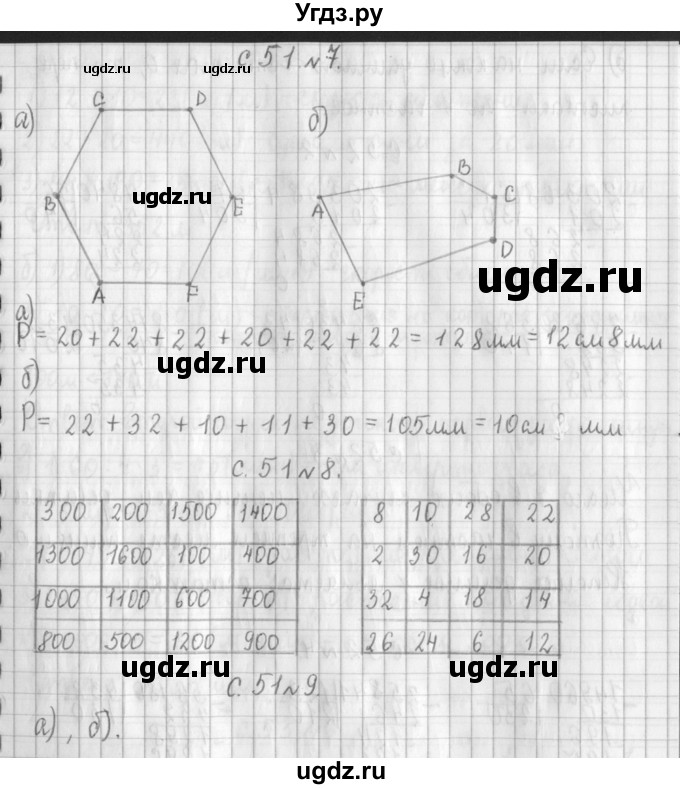 Угдз.ру
с. 51 №7.
ugdz.ru
ugdz.ru
C D
а) б)
B
ugdz.ru
B E
A C
D
ugdz.ru
A F E
а)
P = 20 + 22 + 22 + 20 + 22 + 22 = 128мм = 12см 8мм
ugdz.ru
б)
P = 22 + 32 + 10 + 11 + 30 = 105мм = 10см мм
с. 51 №8.
300 200 1500 1400 8 10 28 22
1300 1600 100 400 2 30 16 20
1000 1100 600 700 32 4 18 14
800 500 1200 900 26 24 6 12
ugdz.ru ugdz.ru
с. 51 №9.
а), б).
ugdz.ru